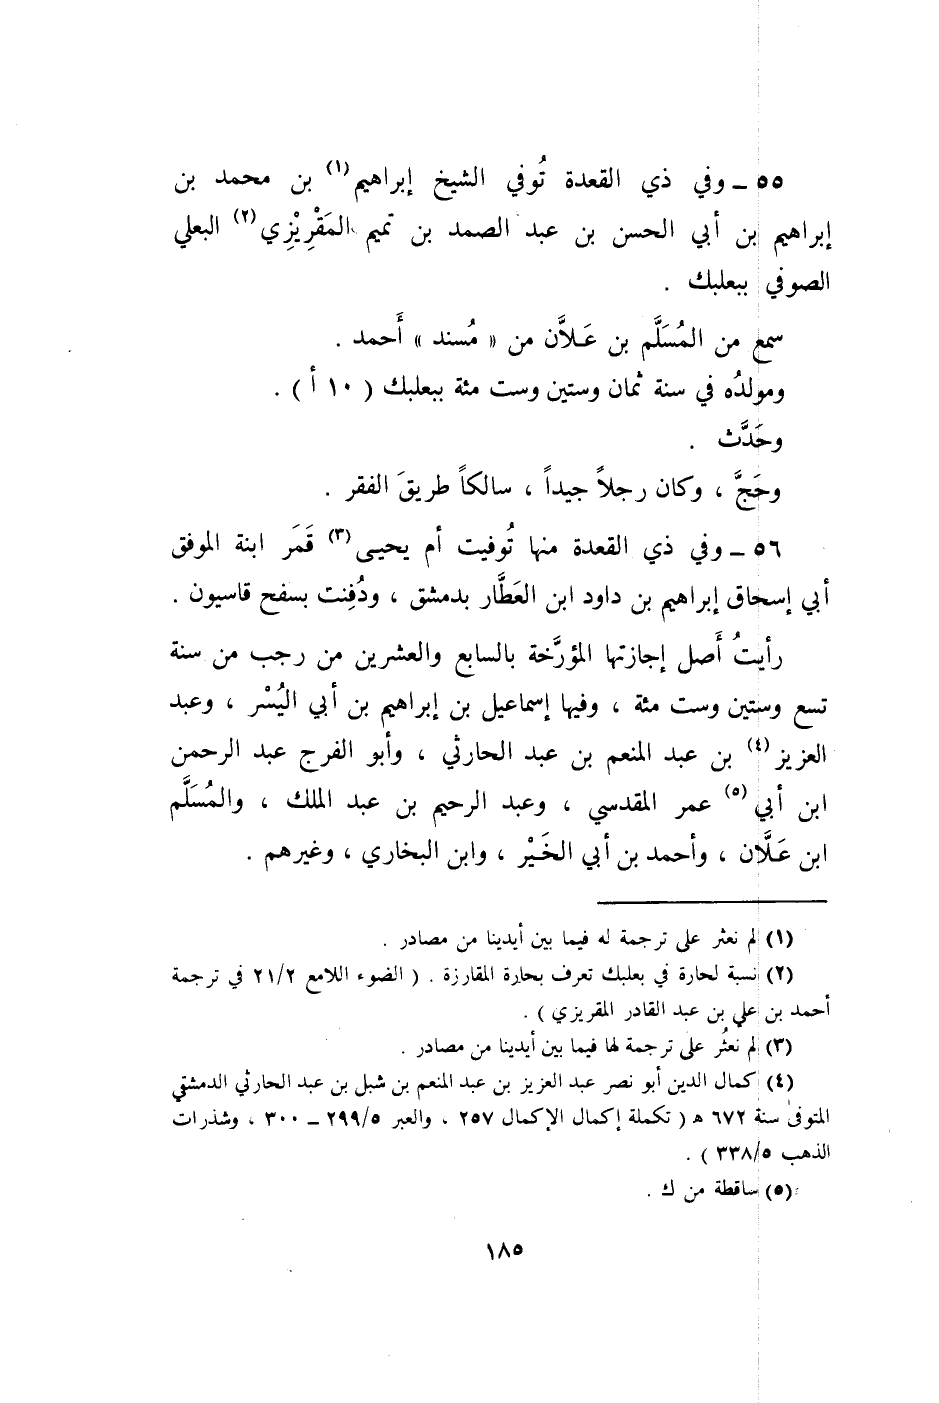 ٥٥ ــ وفي ذي القعدة تُوفي الشيخ إبراهيم(١) بن محمد بن
إبراهيم بن أبي الحسن بن عبد الصمد بن تميم المَقْرِيْزِي(٢) البعلي
الصوفي ببعلبك .
سمع من المُسَلَّم بن عَلاَّن من « مُسند » أَحمد .
ومولدُه في سنة ثمان وستين وست مئة ببعلبك ( ١٠ أ ) .
وحَدَّث .
وحَجَّ ، وكان رجلاً جيداً ، سالكاً طريقَ الفقر .
٥٦ ــ وفي ذي القعدة منها تُوفيت أم يحيى(٣) قَمَر ابنة الموفق
أبي إسحاق إبراهيم بن داود ابن العَطَّار بدمشق ، ودُفِنت بسفح قاسيون .
رأيتُ أَصل إجازتها المؤرَّخة بالسابع والعشرين من رجب من سنة
تسع وستين وست مئة ، وفيها إسماعيل بن إبراهيم بن أبي اليُسْر ، وعبد
العزيز(٤) بن عبد المنعم بن عبد الحارثي ، وأبو الفرج عبد الرحمن
ابن أبي(٥) عمر المقدسي ، وعبد الرحيم بن عبد الملك ، والمُسَلَّم
ابن عَلَّان ، وأحمد بن أبي الخَيْر ، وابن البخاري ، وغيرهم .
(١) لم نعثر على ترجمة له فيما بين أيدينا من مصادر .
(٢) نسبة لحارة في بعلبك تعرف بحارة المقارزة . ( الضوء اللامع ٢١/٢ في ترجمة
أحمد بن علي بن عبد القادر المقريزي ) .
(٣) لم نعثُر على ترجمة لها فيما بين أيدينا من مصادر .
(٤) كمال الدين أبو نصر عبد العزيز بن عبد المنعم بن شبل بن عبد الحارثي الدمشقي
المتوفى سنة ٦٧٢ هـ ( تكملة إكمال الإكمال ٢٥٧ ، والعبر ٢٩٩/٥ ــ ٣٠٠ ، وشذرات
الذهب ٣٣٨/٥ ) .
(٥) ساقطة من ك .
١٨٥